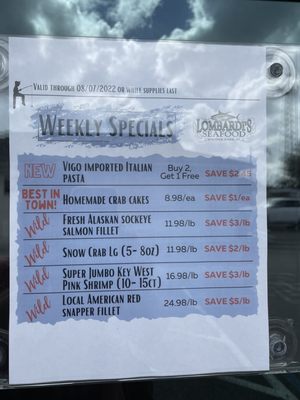 Valid through 08/07/2022 or while supplies last
Weekly Specials
LOMBARDI'S
SEAFOOD
NEW Vigo imported Italian pasta Buy 2, Get 1 Free SAVE $2.45
BEST IN TOWN! Homemade crab cakes 8.98/ea SAVE $1/ea
Wild Fresh Alaskan sockeye salmon fillet 11.98/lb SAVE $3/lb
Wild Snow Crab Lg (5- 8oz) 11.98/lb SAVE $2/lb
Wild Super Jumbo Key West Pink Shrimp (10- 15ct) 16.98/lb SAVE $3/lb
Wild Local American red snapper fillet 24.98/lb SAVE $5/lb